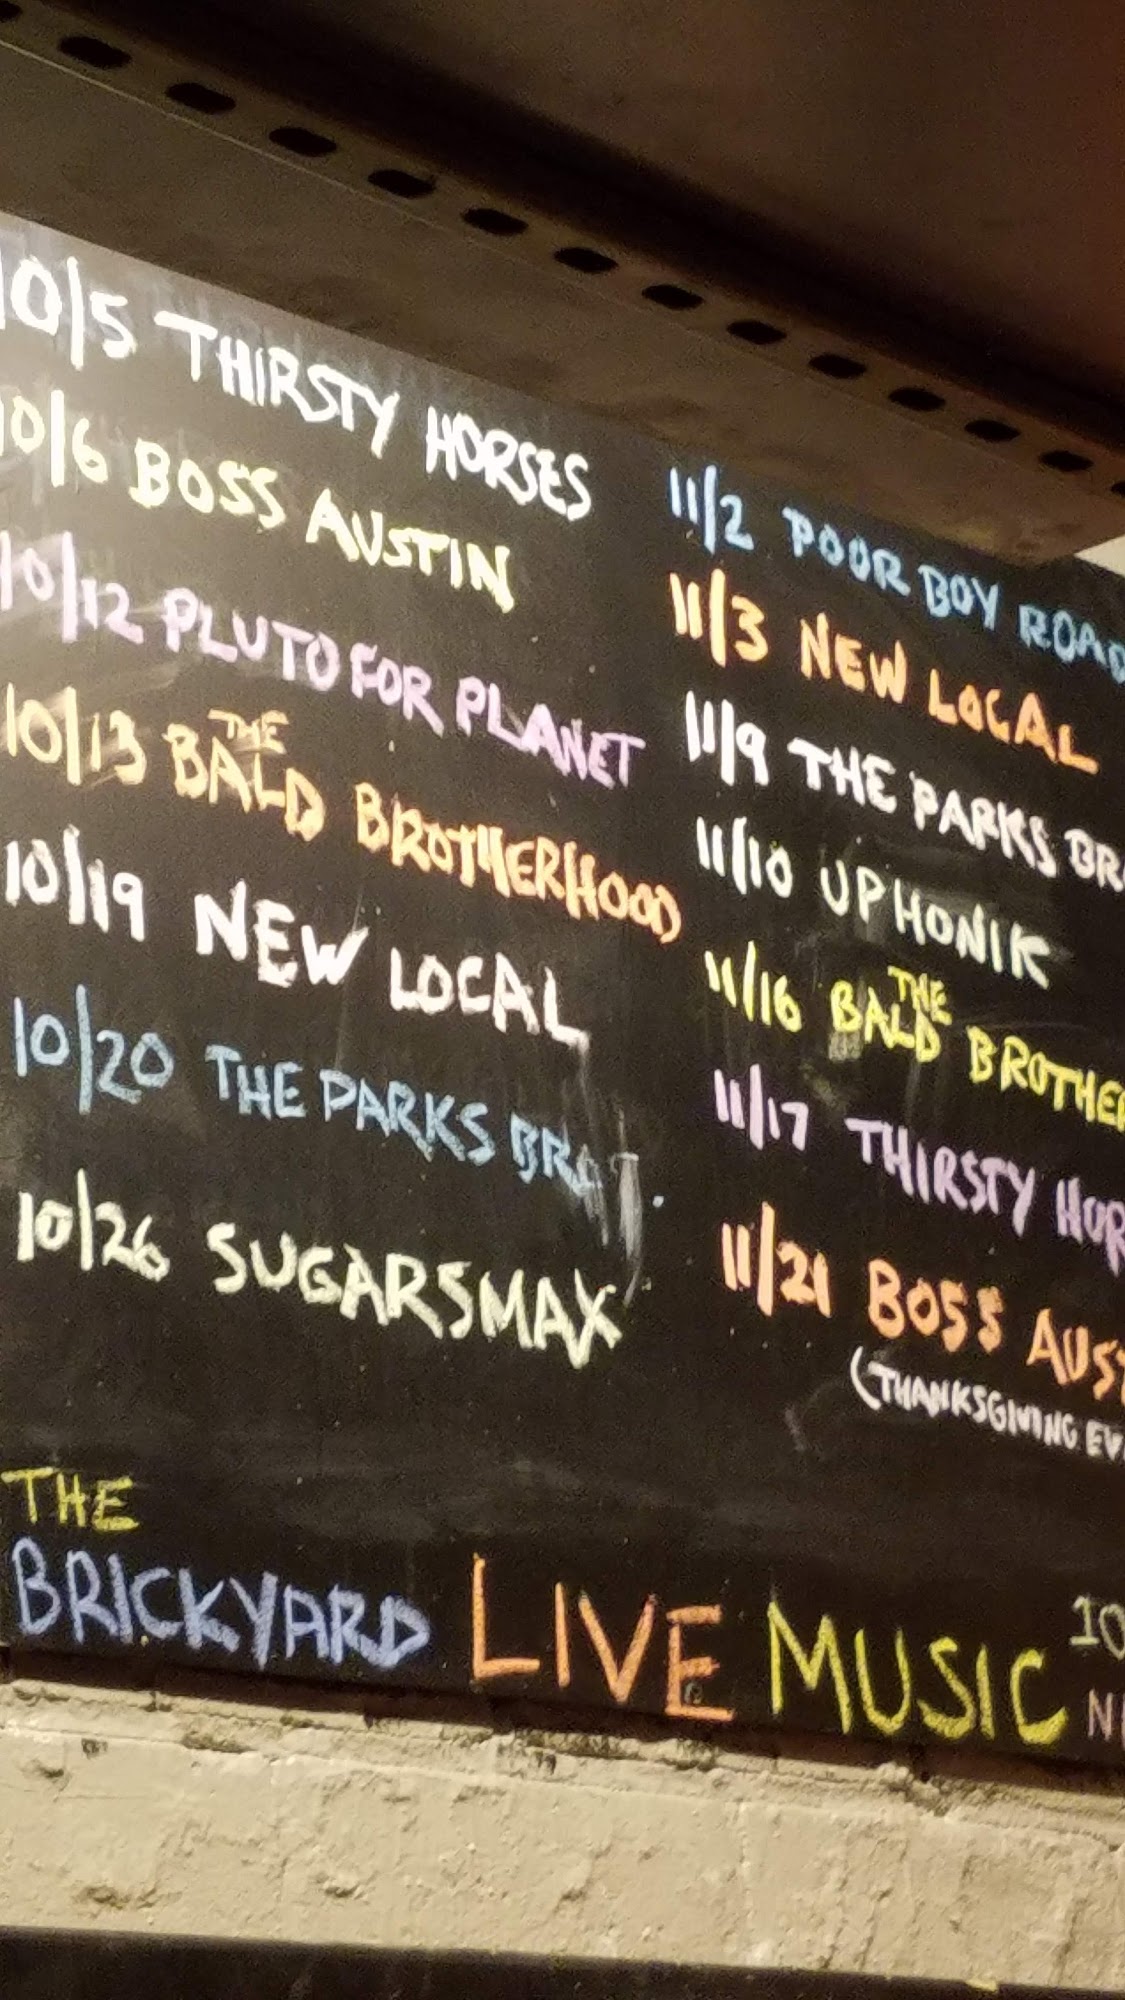 10/5 THIRSTY HORSES
10/6 BOSS AUSTIN
10/12 PLUTO FOR PLANET
10/13 THE BALD BROTHERHOOD
10/19 NEW LOCAL
10/20 THE PARKS BRO
10/26 SUGARSMAX
11/2 POOR BOY ROAD
11/3 NEW LOCAL
11/9 THE PARKS BR
11/10 UPHONIK
11/16 THE BALD BROTHE
11/17 THIRSTY HOR
11/21 BOSS AUST
(THANKSGIVING EV
THE
BRICKYARD LIVE MUSIC 10